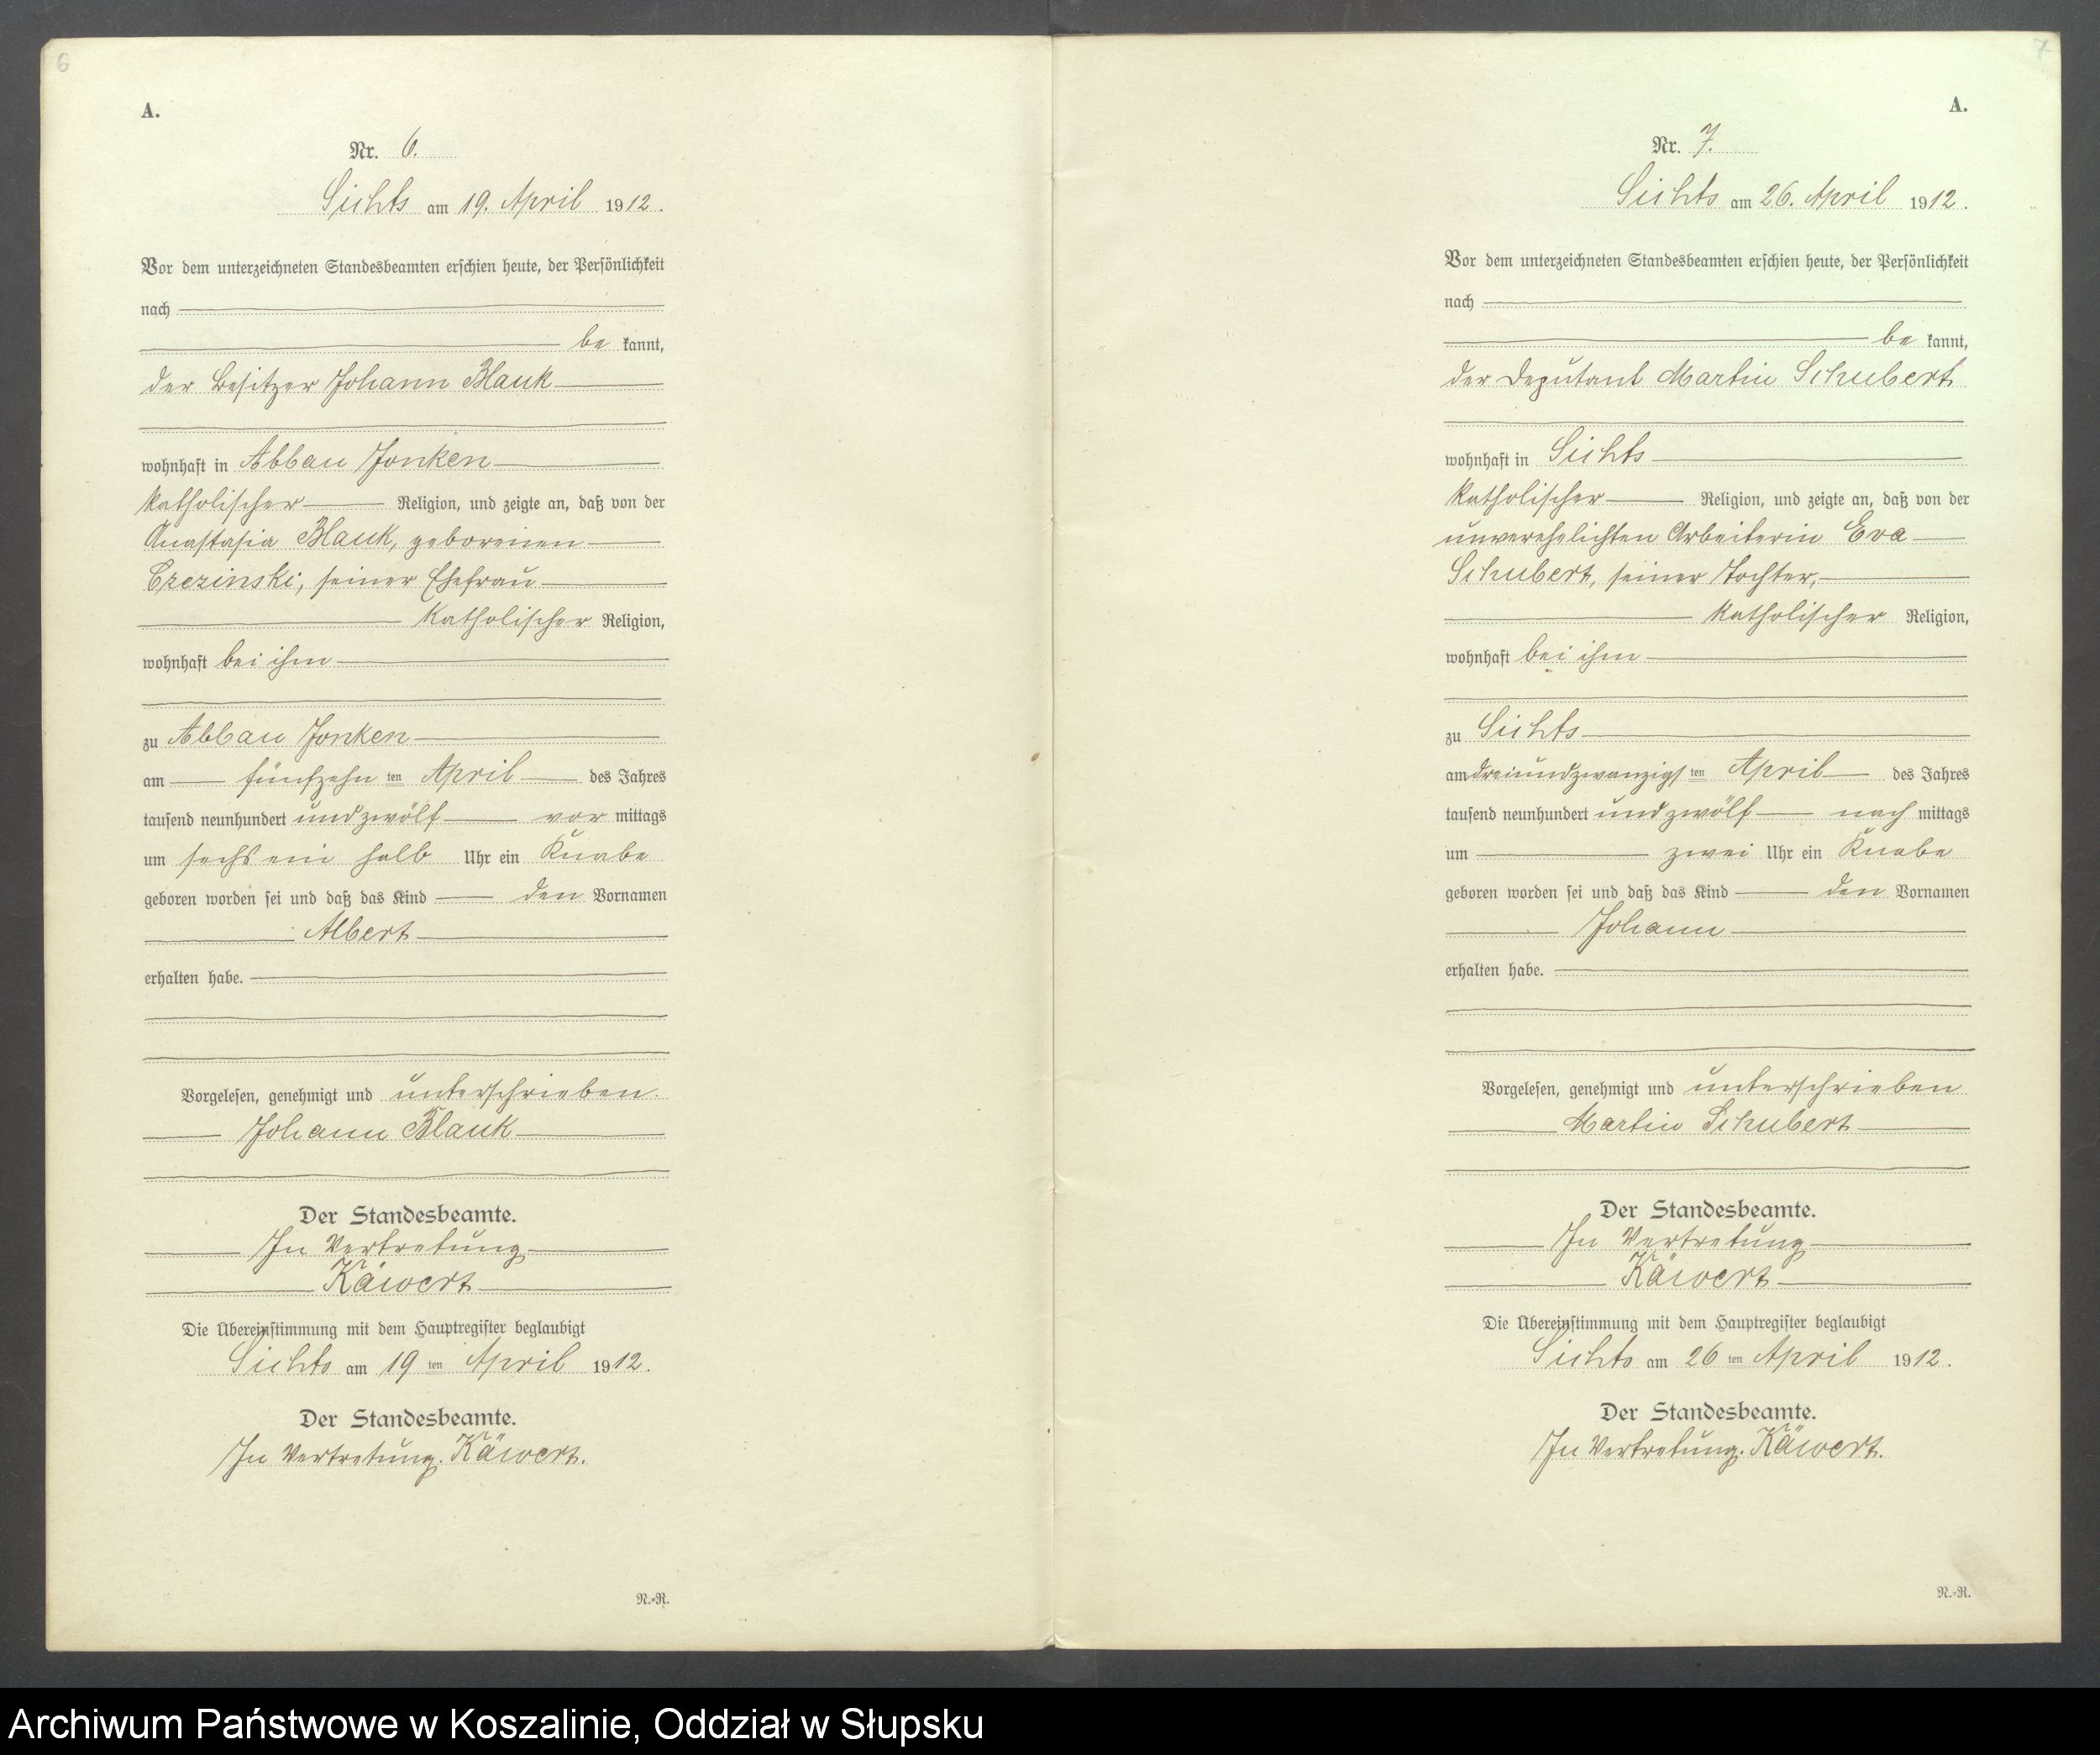 6
A.
Nr. 6.
Sichts am 19. April 1912.
Vor dem unterzeichneten Standesbeamten erschien heute, der Persönlichkeit
nach
be kannt,
der Besitzer Johann Blank
wohnhaft in Abbau Jonken
katholischer Religion, und zeigte an, daß von der
Anastasia Blank, geborenen
Czezinski, seiner Ehefrau
katholischer Religion,
wohnhaft bei ihm
zu Abbau Jonken
am fünfzehn ten April des Jahres
tausend neunhundert und zwölf vor mittags
um sechs ein halb Uhr ein Knabe
geboren worden sei und daß das Kind den Vornamen
Albert
erhalten habe.
Vorgelesen, genehmigt und unterschrieben.
Johann Blank
Der Standesbeamte.
In Vertretung
Käwert
Die Übereinstimmung mit dem Hauptregister beglaubigt
Sichts am 19 ten April 1912.
Der Standesbeamte.
In Vertretung. Käwert.
N.-R.
7
A.
Nr. 7.
Sichts am 26. April 1912.
Vor dem unterzeichneten Standesbeamten erschien heute, der Persönlichkeit
nach
be kannt,
der Deputant Martin Schubert
wohnhaft in Sichts
katholischer Religion, und zeigte an, daß von der
unverehelichten Arbeiterin Eva
Schubert, seiner Tochter,
katholischer Religion,
wohnhaft bei ihm
zu Sichts
am dreiundzwanzigs ten April des Jahres
tausend neunhundert und zwölf nach mittags
um zwei Uhr ein Knabe
geboren worden sei und daß das Kind den Vornamen
Johann
erhalten habe.
Vorgelesen, genehmigt und unterschrieben
Martin Schubert
Der Standesbeamte.
In Vertretung
Käwert
Die Übereinstimmung mit dem Hauptregister beglaubigt
Sichts am 26 ten April 1912.
Der Standesbeamte.
In Vertretung. Käwert.
N.-R.
Archiwum Państwowe w Koszalinie, Oddział w Słupsku